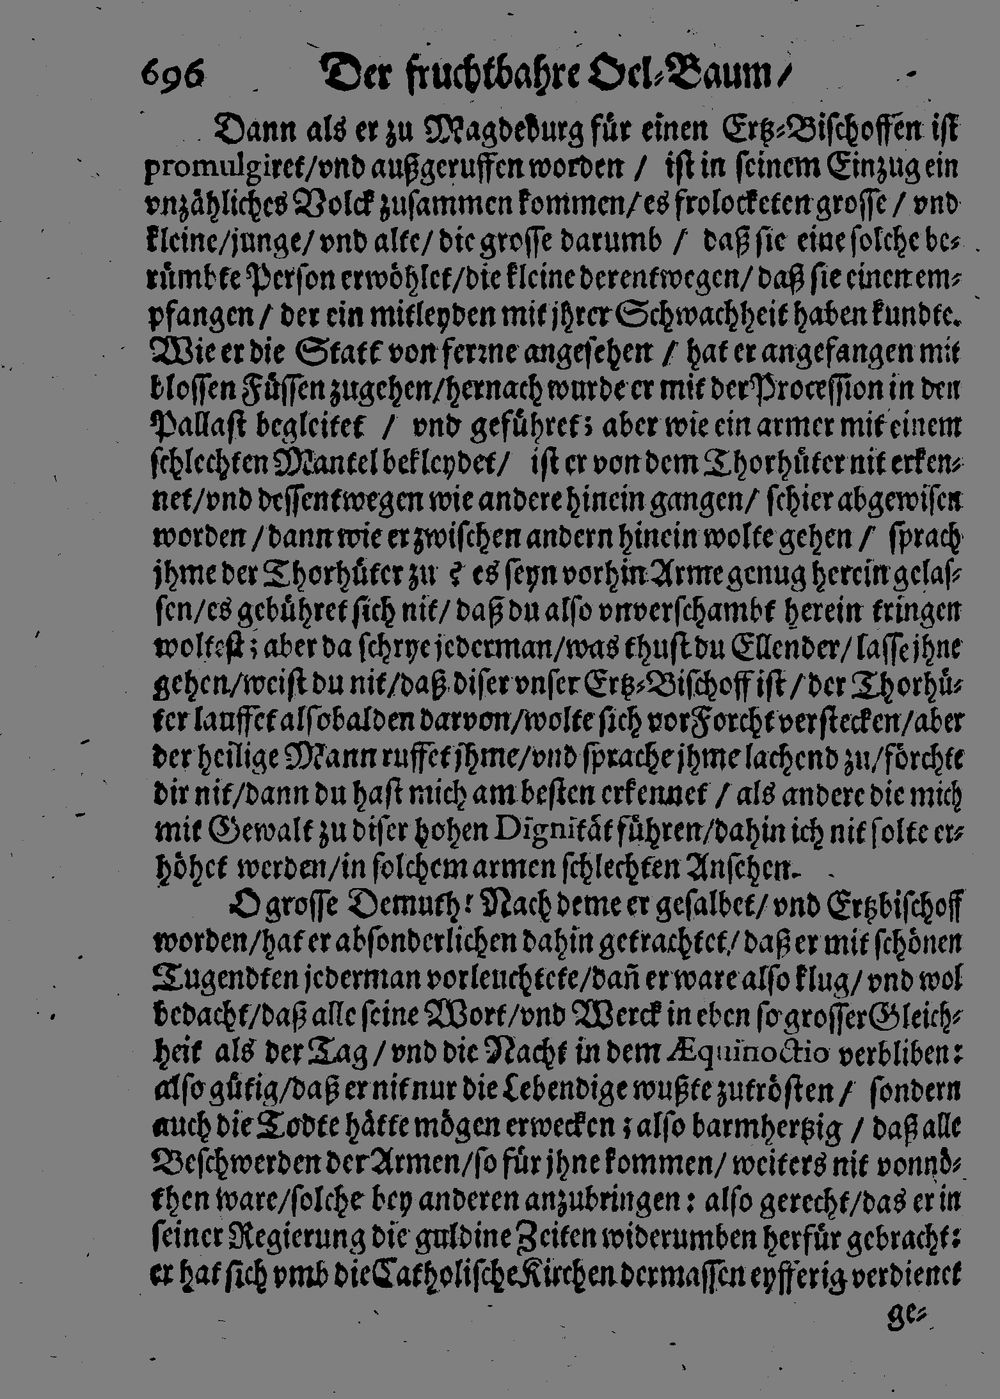 696 Der fruchtbahre Oel-Baum/
Dann als er zu Magdeburg für einen Ertz-Bischoffen ist
promulgiret/vnd außgeruffen worden / ist in seinem Einzug ein
vnzähliches Volck zusammen kommen/ es frolocketen grosse / vnd
kleine/junge/ vnd alte/ die grosse darumb / daß sie eine solche be-
rümbte Person erwöhlet/die kleine derentwegen/ daß sie einen em-
pfangen / der ein mitleyden mit jhrer Schwachheit haben kundte.
Wie er die Statt von ferrne angesehen / hat er angefangen mit
blossen Füssen zugehen/hernach wurde er mit der Procession in den
Pallast begleitet / vnd geführet; aber wie ein armer mit einem
schlechten Mantel bekleydet/ ist er von dem Thorhüter nit erken-
net/vnd dessentwegen wie andere hinein gangen/ schier abgewisen
worden / dann wie er zwischen andern hinein wolte gehen / sprach
jhme der Thorhüter zu ? es seyn vorhin Arme genug herein gelas-
sen/es gebühret sich nit/ daß du also vnverschambt herein tringen
woltest; aber da schrye jederman/was thust du Ellender/ lasse jhne
gehen/weist du nit/daß diser vnser Ertz-Bischoff ist / der Thorhü-
ter lauffet alsobalden darvon/wolte sich vor Forcht verstecken/aber
der heilige Mann ruffet jhme/vnd sprache jhme lachend zu/förchte
dir nit/dann du hast mich am besten erkennet / als andere die mich
mit Gewalt zu diser hohen Dignität führen/dahin ich nit solte er-
höhet werden/in solchem armen schlechten Ansehen.
O grosse Demuth! Nach deme er gesalbet/ vnd Ertzbischoff
worden/hat er absonderlichen dahin getrachtet/ daß er mit schönen
Tugendten jederman vorleuchtete/dañ er ware also klug/ vnd wol
bedacht/daß alle seine Wort/vnd Werck in eben so grosser Gleich-
heit als der Tag / vnd die Nacht in dem Æquinoctio verbliben:
also gütig/daß er nit nur die Lebendige wußte zutrösten / sondern
auch die Todte hätte mögen erwecken; also barmhertzig / daß alle
Beschwerden der Armen/so für jhne kommen/ weiters nit vonnö-
then ware/solche bey anderen anzubringen: also gerecht/das er in
seiner Regierung die guldine Zeiten widerumben herfür gebracht:
er hat sich vmb die Catholische Kirchen dermassen eyfferig verdienet
ge-